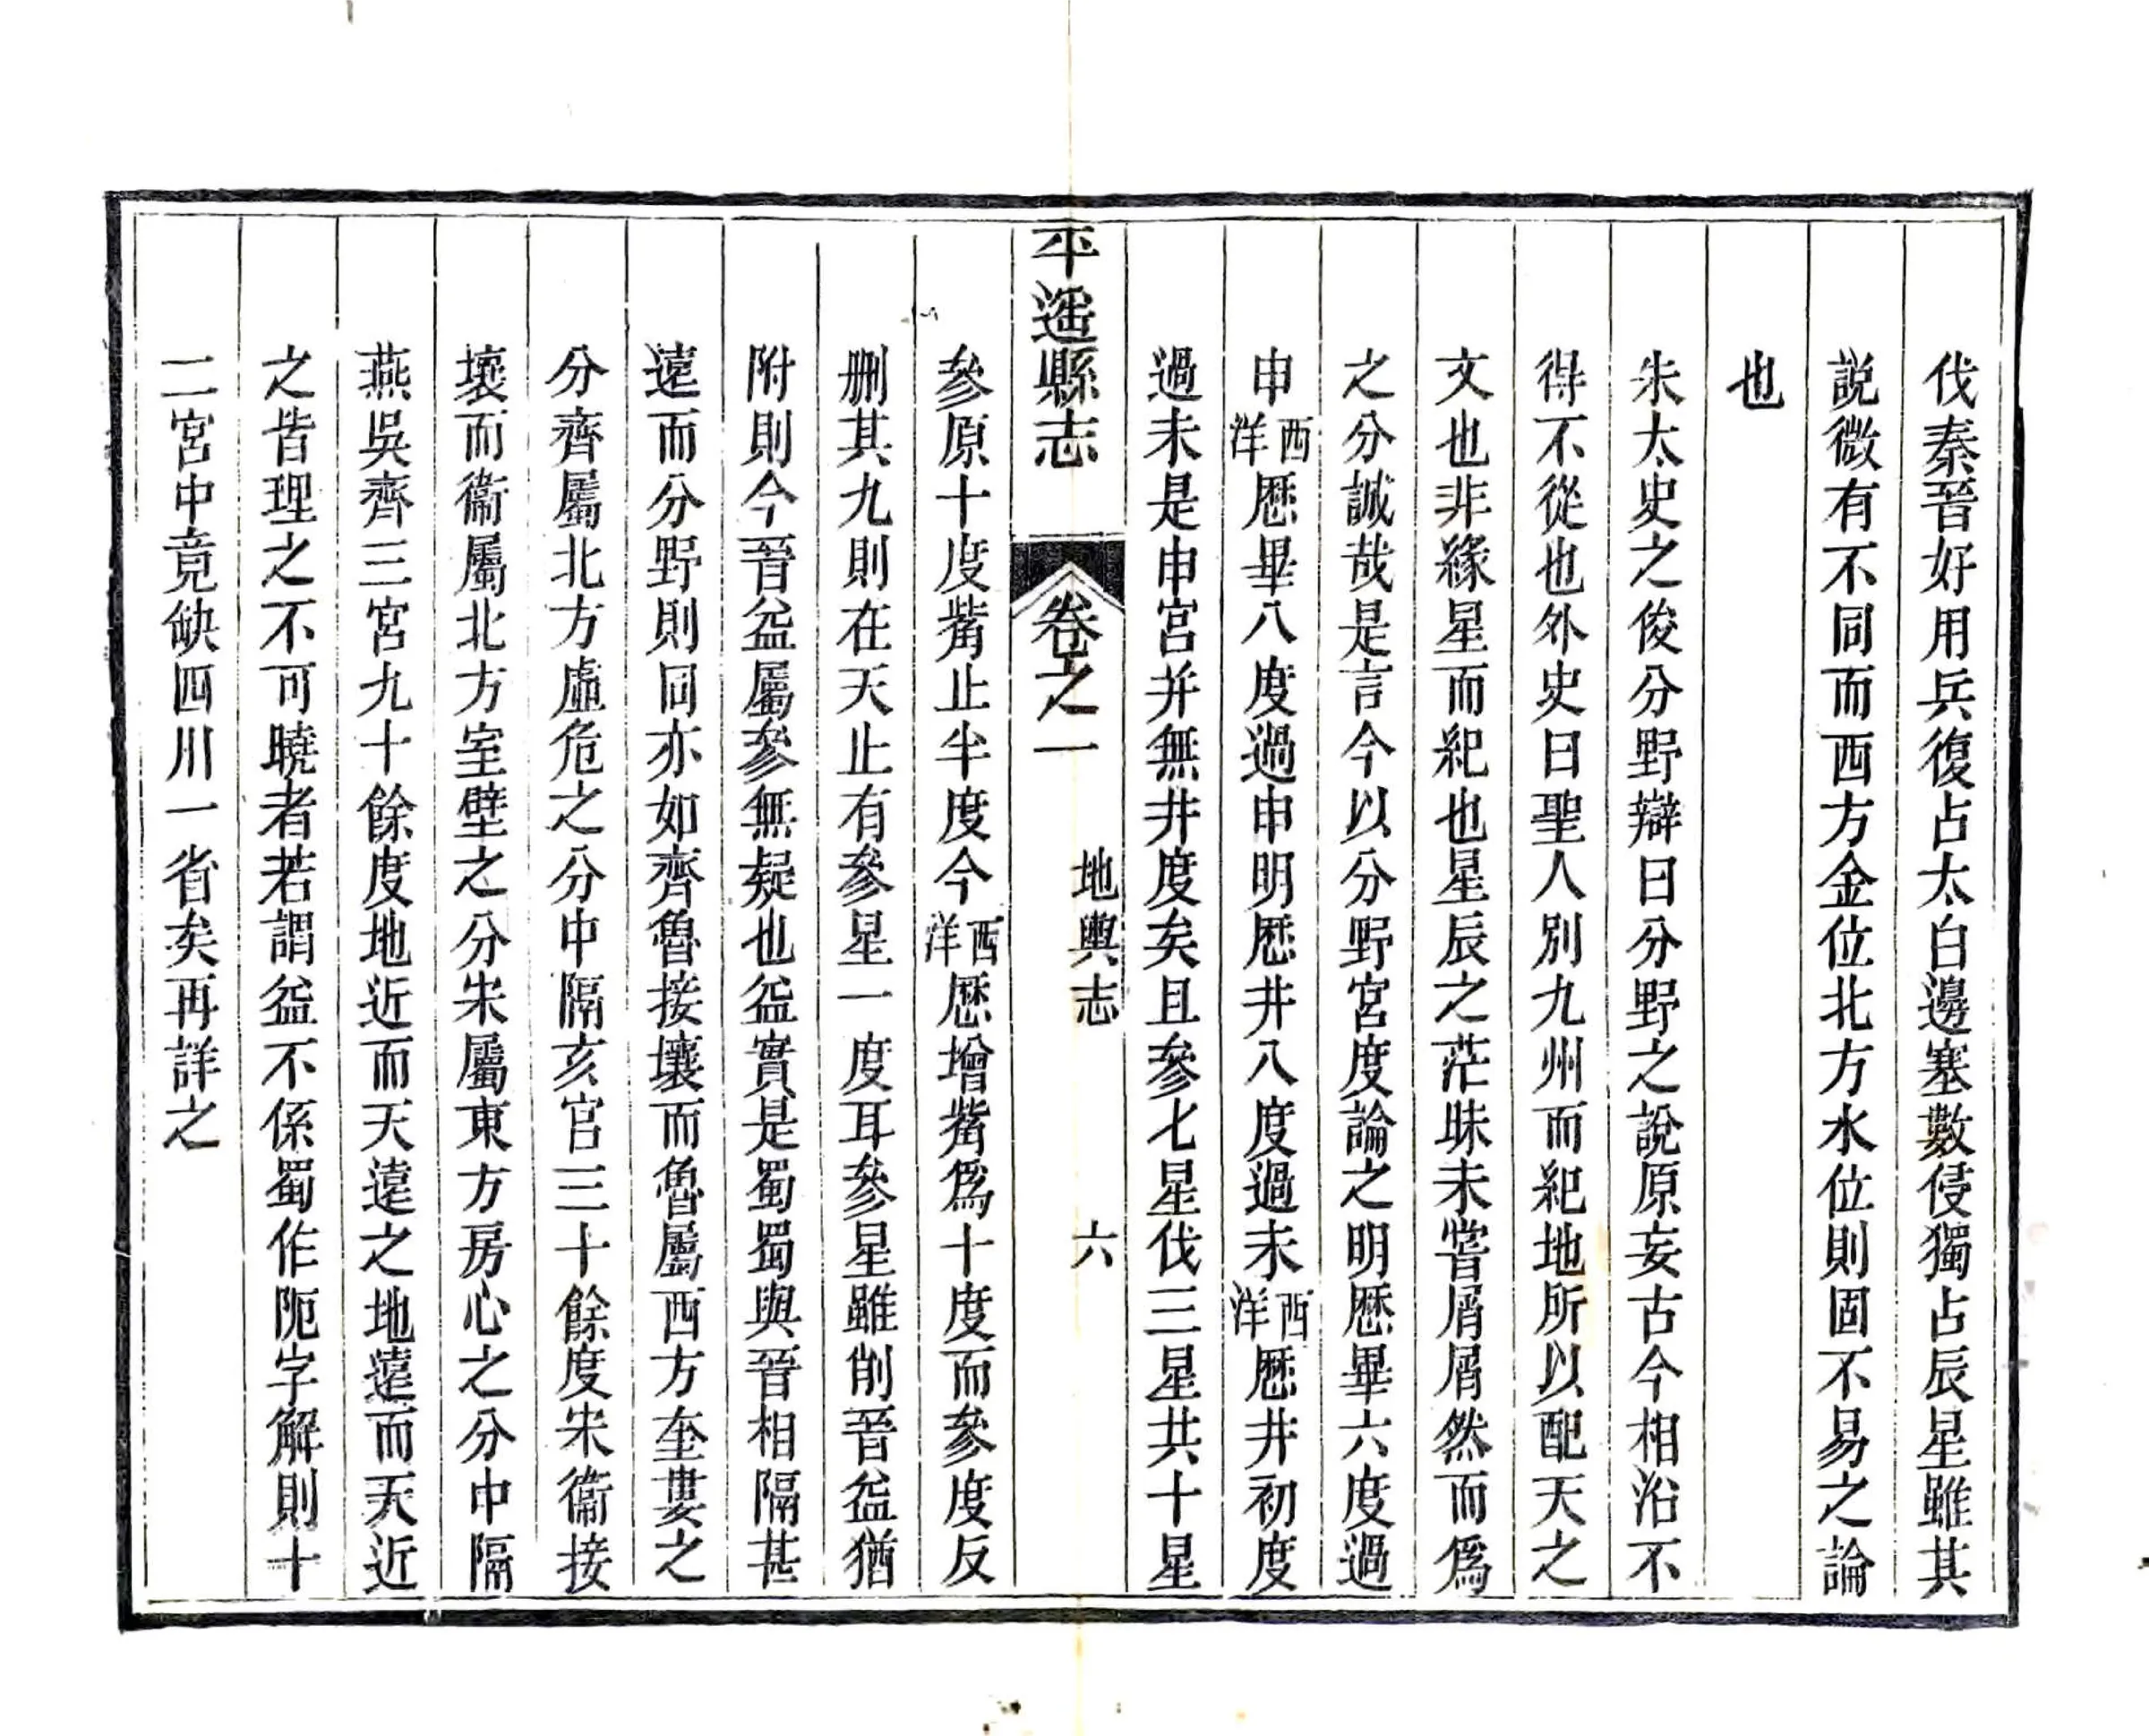 伐秦晉好用兵復占太白邊塞數侵獨占辰星雖其
説微有不同而西方金位北方水位則固不易之論
也
朱太史之俊分野辯曰分野之說原妄古今相沿不
得不從也外史曰聖人別九州而紀地所以配天之
文也非緣星而紀也星辰之茫昧未嘗屑屑然而爲
之分誠哉是言今以分野宮度論之明厯畢六度過
申西洋厯畢八度過申明厯井八度過未西洋厯井初度
過未是申宮并無井度矣且參七星伐三星共十星
平遥縣志 卷之一 地輿志 六
參原十度觜止半度今西洋厯增觜爲十度而參度反
刪其九則在天止有參星一度耳參星雖削晉益猶
附則今晉益屬參無疑也益實是蜀蜀與晉相隔甚
遠而分野則同亦如齊魯接壤而魯屬西方奎婁之
分齊屬北方虛危之分中隔亥宮三十餘度宋衞接
壤而衞屬北方室壁之分宋屬東方房心之分中隔
燕吳齊三宮九十餘度地近而天遠之地遠而天近
之皆理之不可曉者若謂益不係蜀作阨字解則十
二宮中竟缺四川一省矣再詳之